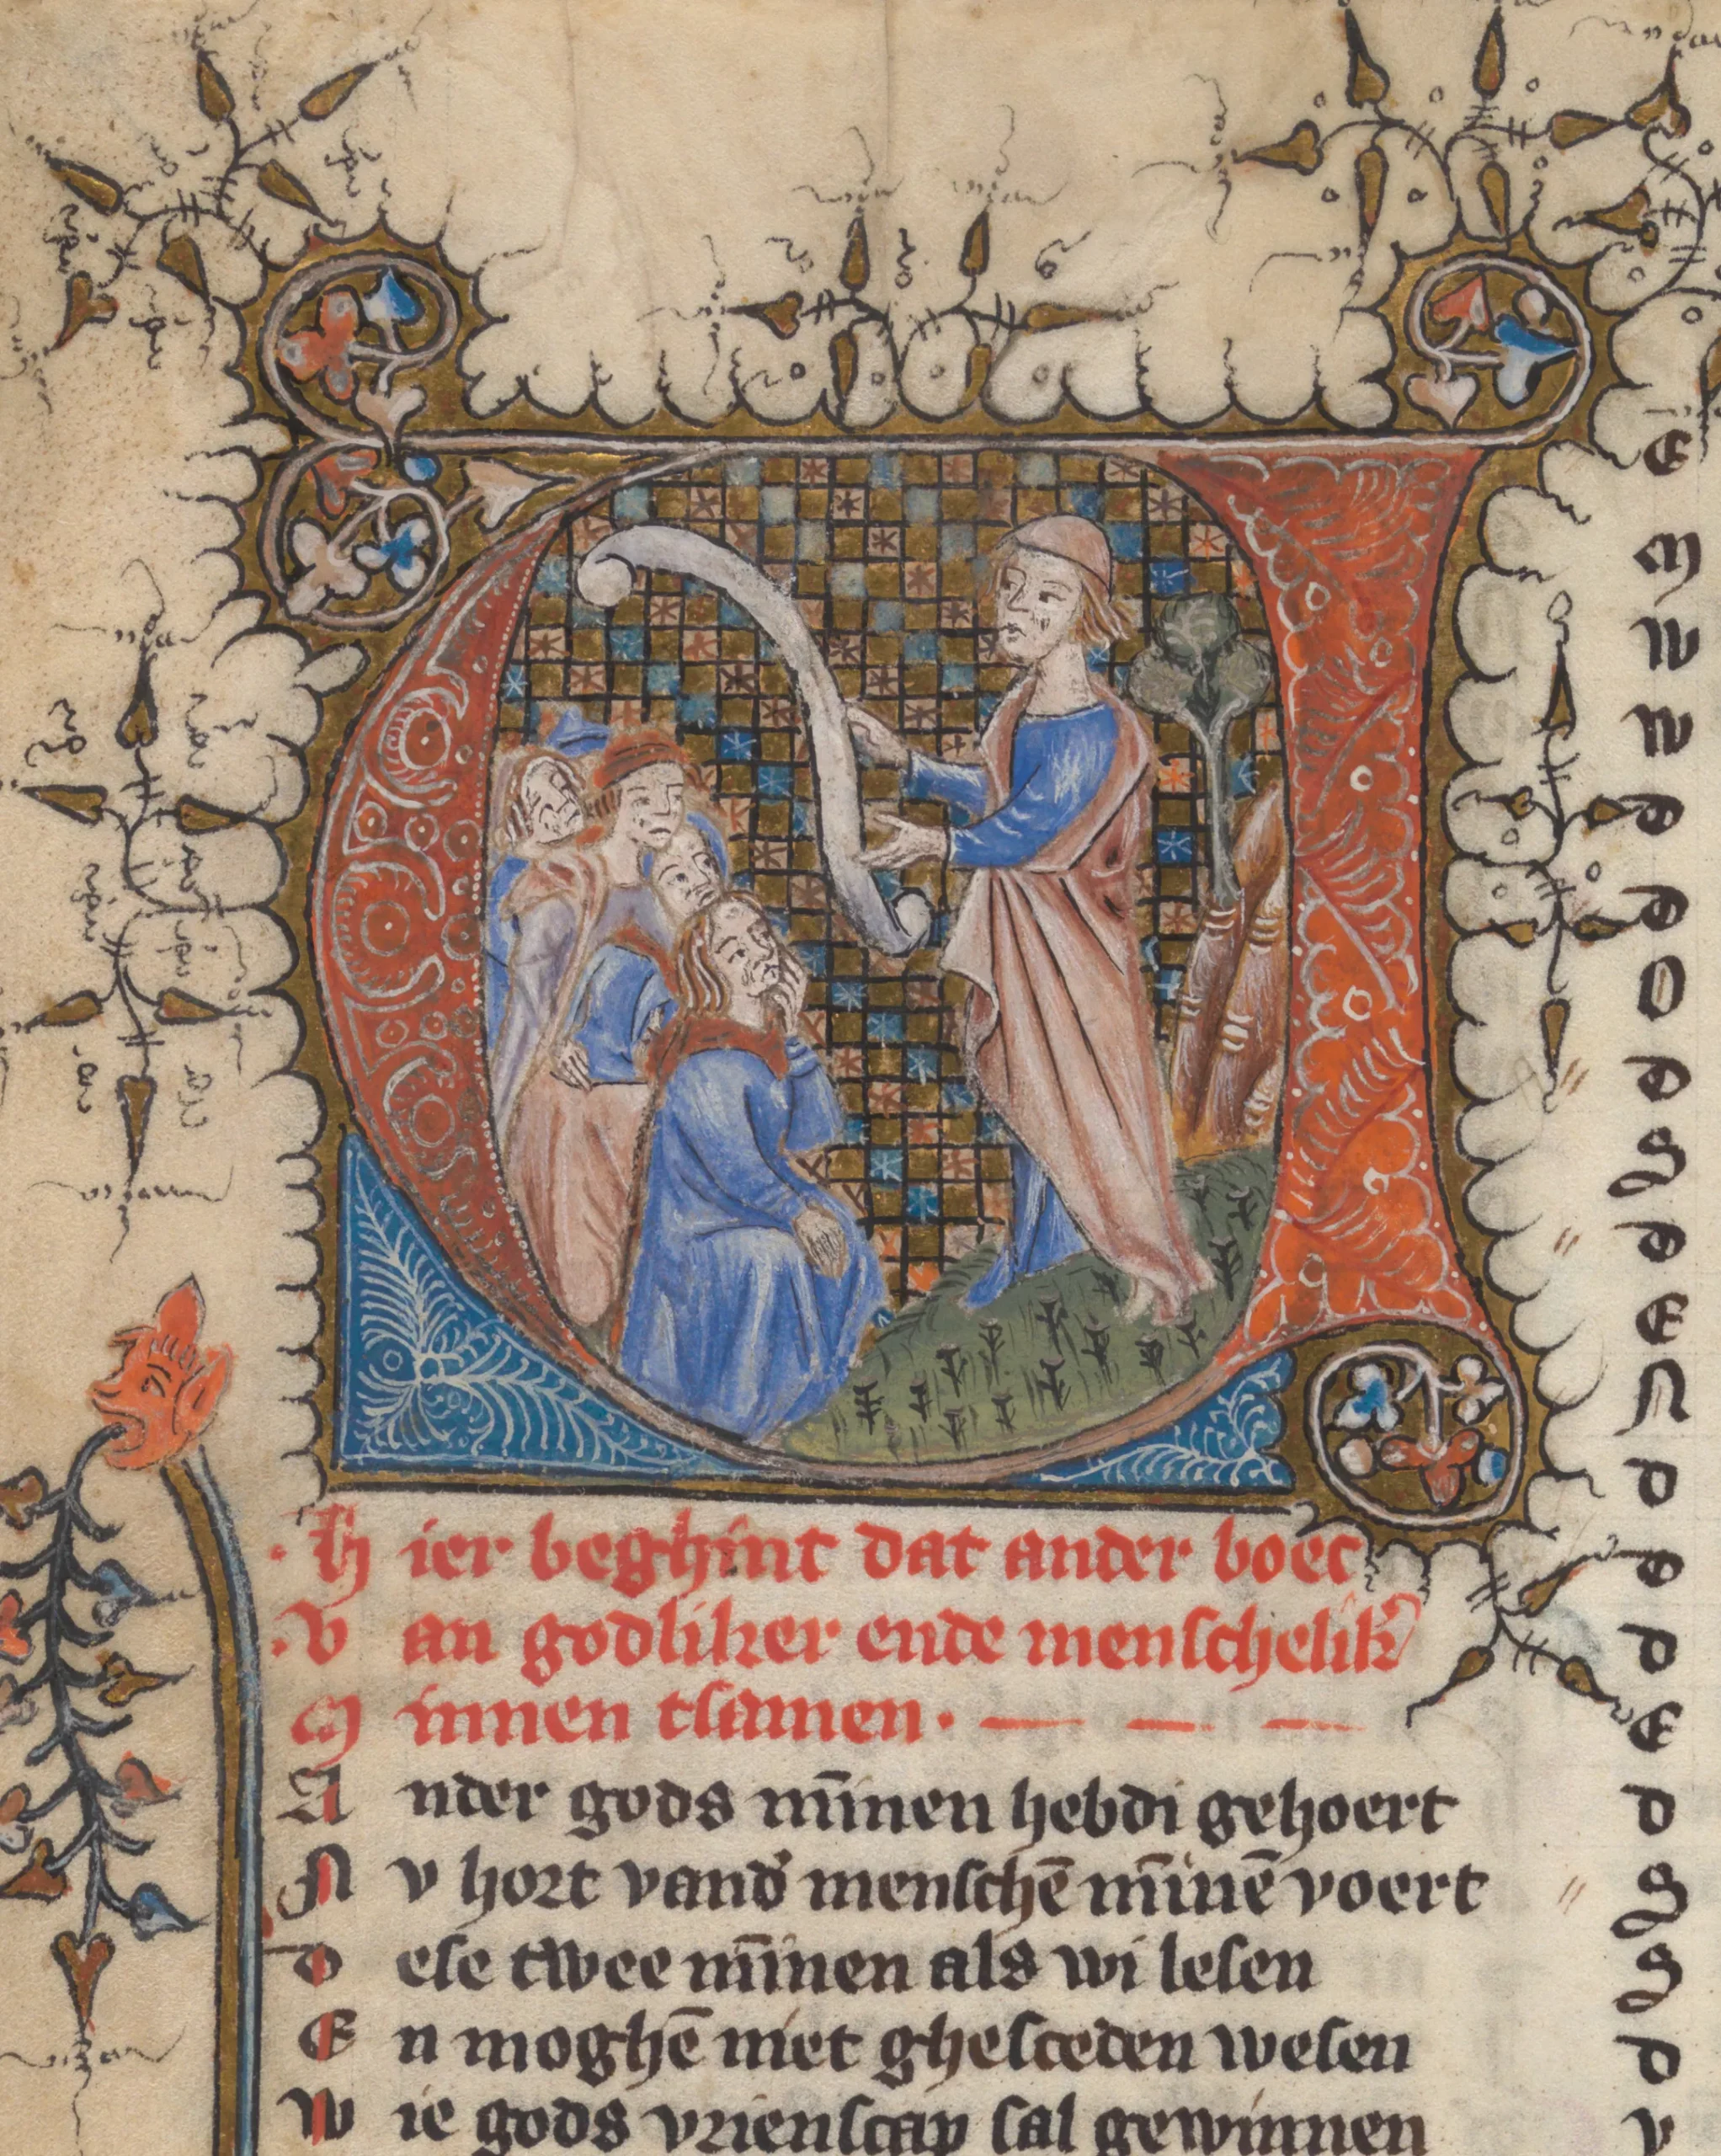 Hier beghint dat ander boec
Van godliker ende menschelik᷑
Minnen tsamen.
Ander gods mīnen hebdi gehoert
Nv hort vand᷑ menschē mīnē voert
Dese twee mīnen als wi lesen
En moghē niet ghesceden wesen
Wie gods vrienscap sal gewinnen
E
M
W
W
D
D
O
D
S
D
E
N
D
D
D
E
D
S
S
D
V